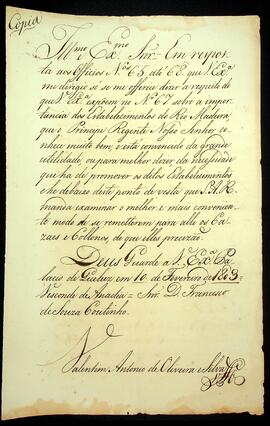 Copia
Ill.mo e Ex.mo Snr = Em respos-
ta aos Officios N.os 65. até 68. que V. Ex.a
me dirigio se me offerece dizer a respeito do
que V. Ex.a expõem no N.o 67 sobre a impor-
tancia dos Estabelecimentos do Rio Madeira,
que o Principe Regente Nosso Senhor co-
nhece muito bem, e está convencido da grande
utilidade, ou para melhor dizer, da necessidade
que ha de promover os ditos Estabelecimentos
e he debaixo deste ponto de vista que S. A. R.
manda examinar o melhor e mais convenien-
te modo de se remetterem para alli os Ca-
zaes e Collonos, de que ella precizão.
Deus Guarde a V. Ex.a Pa-
lacio de Queluz em 10 de Fevereiro de 1803 =
Visconde de Anadia = Snr. D. Francisco
de Souza Coutinho.
Valentim Antonio de Oliveira e Silva